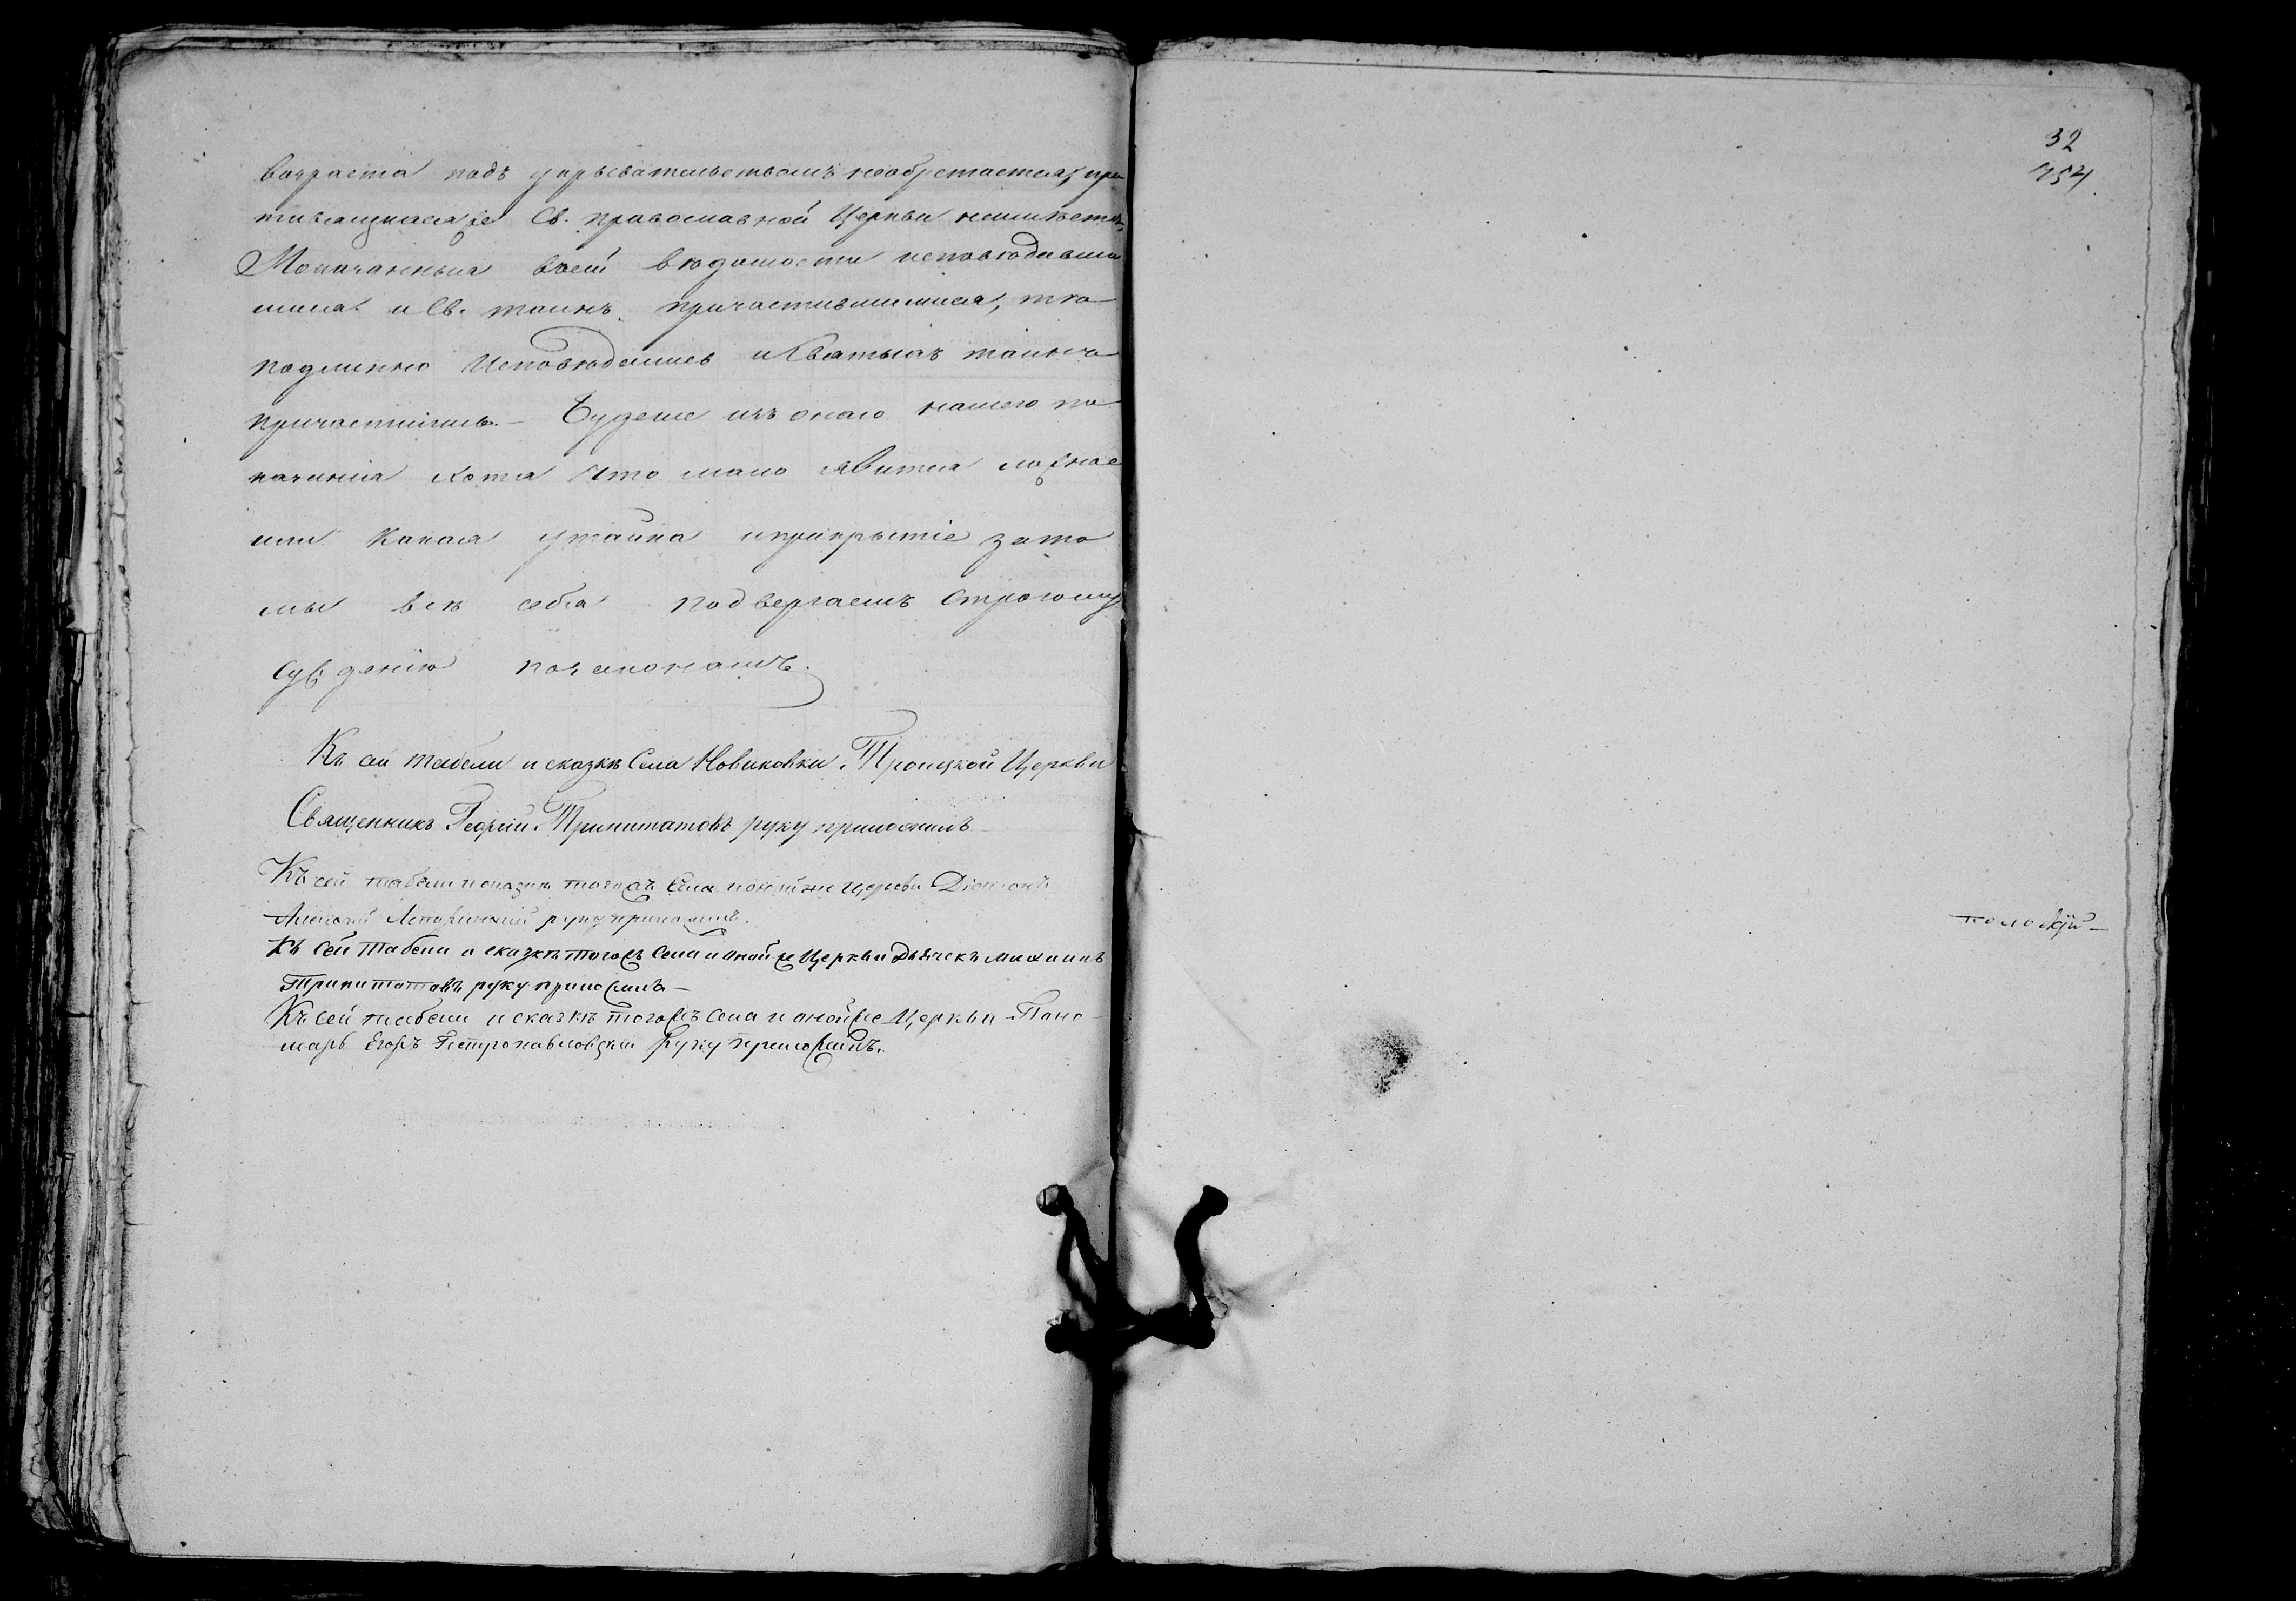 возраста подъ укрывательствомъ необретается, про
тивляющiяся же Св. православной Церкви неимѣется,
А показанныя всей вѣдомости исповѣдавши
мися и Св. таинъ причастившимися, тѣ
подлинно Исповѣдались и Святыхъ таинъ
причастились. – Будеже изъ онаго нашего по
казанiя хотя что мало явится ложное
или какая утайка и прикрытiе за то
мы всѣ себя подвергаемъ строгому
суждѣнiю по законамъ.
Къ сей табели и сказкѣ Села Новиковки Троицкой Церкви
Священникъ Георгiй Трипитатовъ руку приложилъ
Къ сей табели и сказкѣ тогожъ Села и онойже Церкви Дiаконъ
Алексѣй руку приложилъ.
Къ сей табели и сказкѣ тогожъ Села и онойже Церкви Дьячекъ Михаилъ
Трипитатовъ руку приложилъ –
Къ сей табели и сказкѣ тогожъ Села и онойже Церкви Поно
марь Егоръ Петропавловскiй руку приложилъ.
32
754